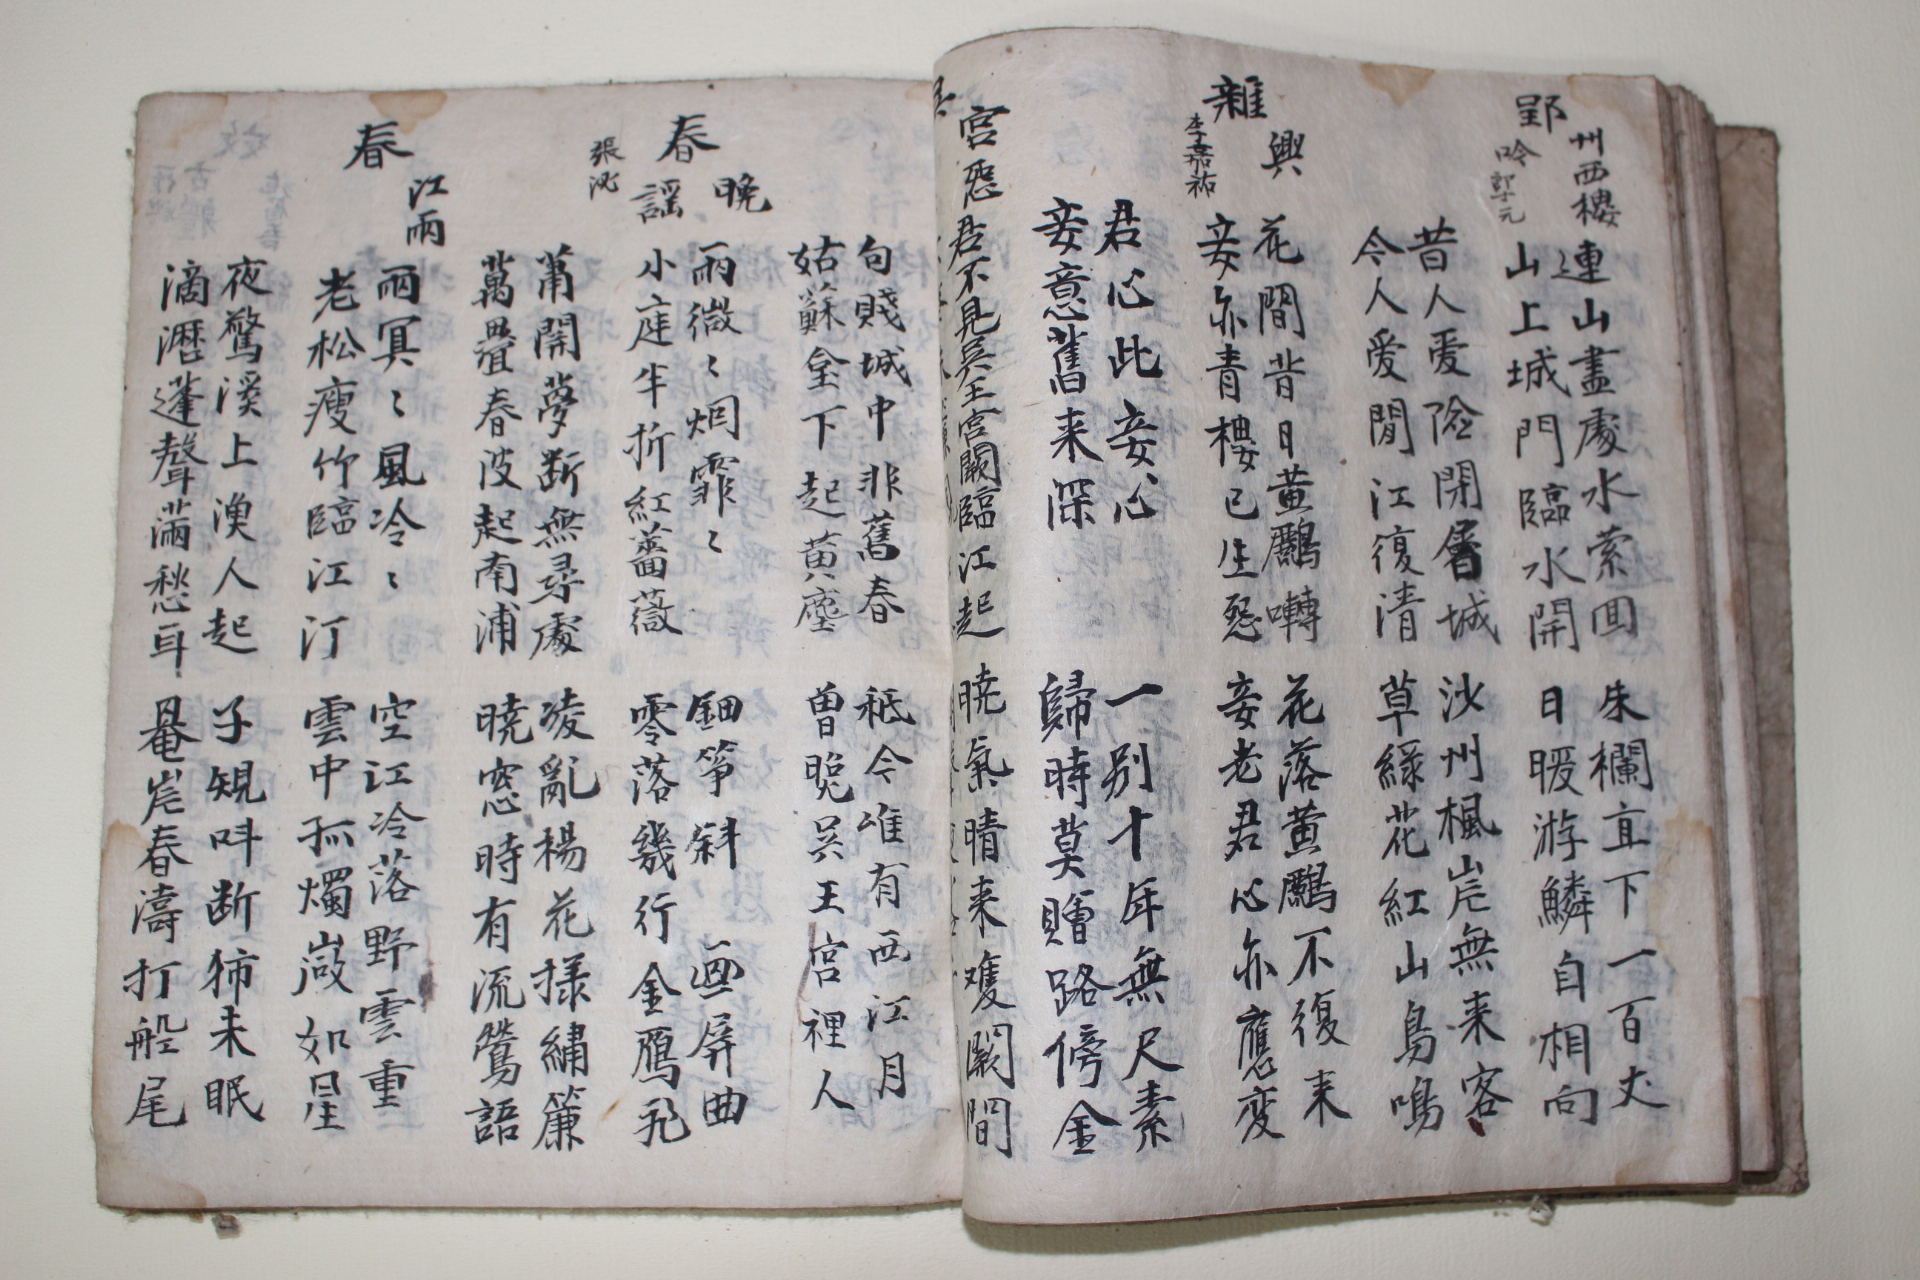 郢州西樓吟 郎士元
連山盡處水索回 朱欄直下一百丈
山上城門臨水開 日暖游鱗自相向
昔人愛險閉層城 沙州楓岸無来客
今人愛閒江復清 草綠花紅山鳥鳴
雜興 李嘉祐
花間昔日黄鸝囀 花落黄鸝不復来
妾亦青樓已生怨 妾老君心亦應変
君心此妾心 一别十年無尺素
妾意舊来深 歸時莫贈路傍金
吳宮怨
君不見吳王宮闕臨江起 曉氣晴来雙闕間
句賤城中非舊春 秖今唯有西江月
姑蘇臺下起黄塵 曽照吳王宮裡人
春晚謠 張泌
雨微〻烟霏〻 鈿箏斜〻画屏曲
小庭半折紅薔薇 零落幾行金鴈飛
蕭關夢断無尋處 凌亂楊花撲繡簾
萬疊春波起南浦 曉窓時有流鶯語
春江雨
雨冥〻風冷〻 空江冷落野雲重
老松瘦竹臨江汀 雲中孤燭微如星
夜驚溪上漁人起 子規叫断獨未眠
滴瀝蓬聲滿愁耳 罨岸春濤打船尾